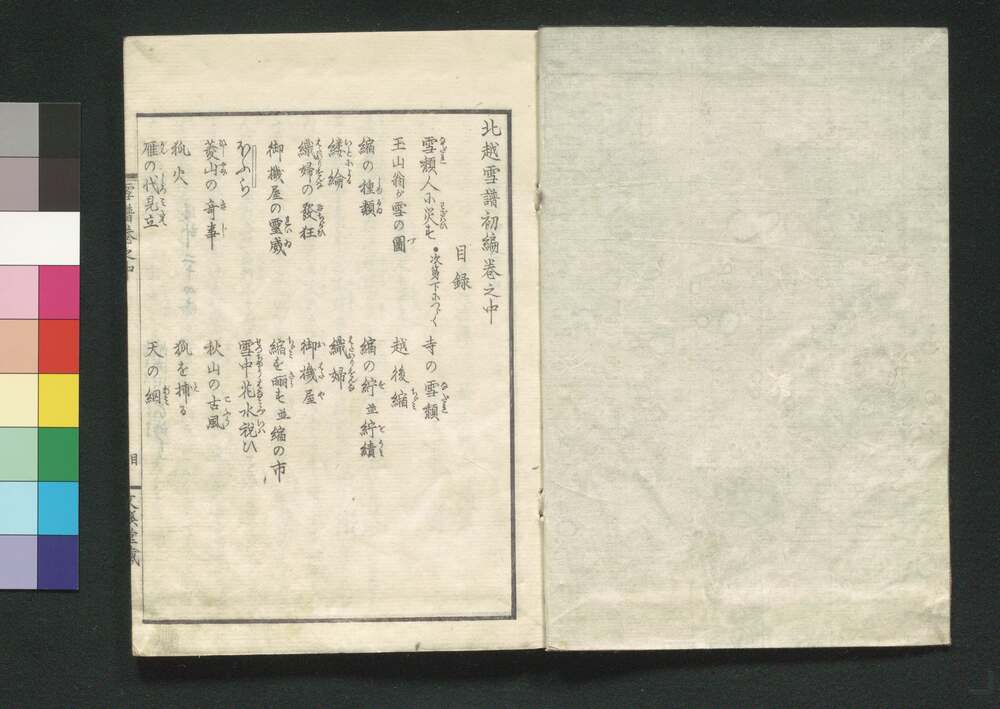 北越雪譜初編巻之中
目録
雪頽人に災す ●次第下につゞく
寺の雪頽
玉山翁が雪の圖
越後縮
縮の種類
縮の紵並紵績
縷綸
織婦
織婦の發狂
御機屋
御機屋の霊威
縮を晒す並縮の市
ほふら
雪中花水祝ひ
菱山の奇事
秋山の古風
狐火
狐を捕る
雁の代見立
天の網
雪譜巻之中
目
文渓堂蔵